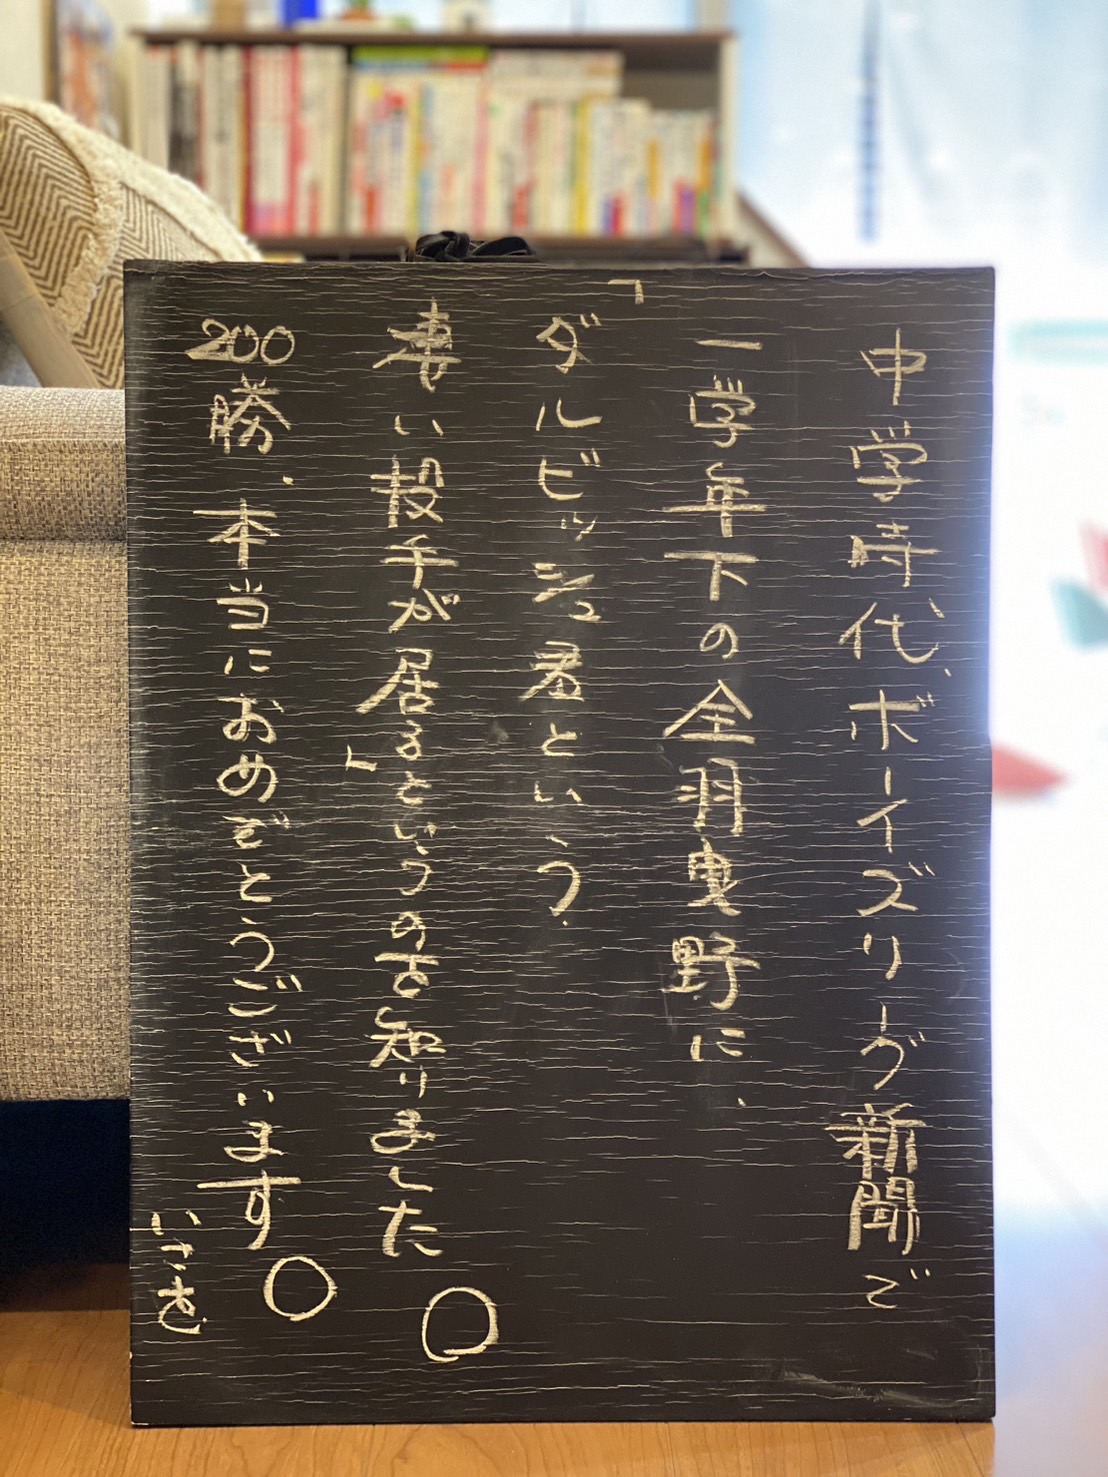 中学時代、ボーイズリーグ新聞で
一学年下の全羽曳野に、
「ダルビッシュ君という、
凄い投手が居る」というのを知りました。
200勝、本当におめでとうございます。
いさを